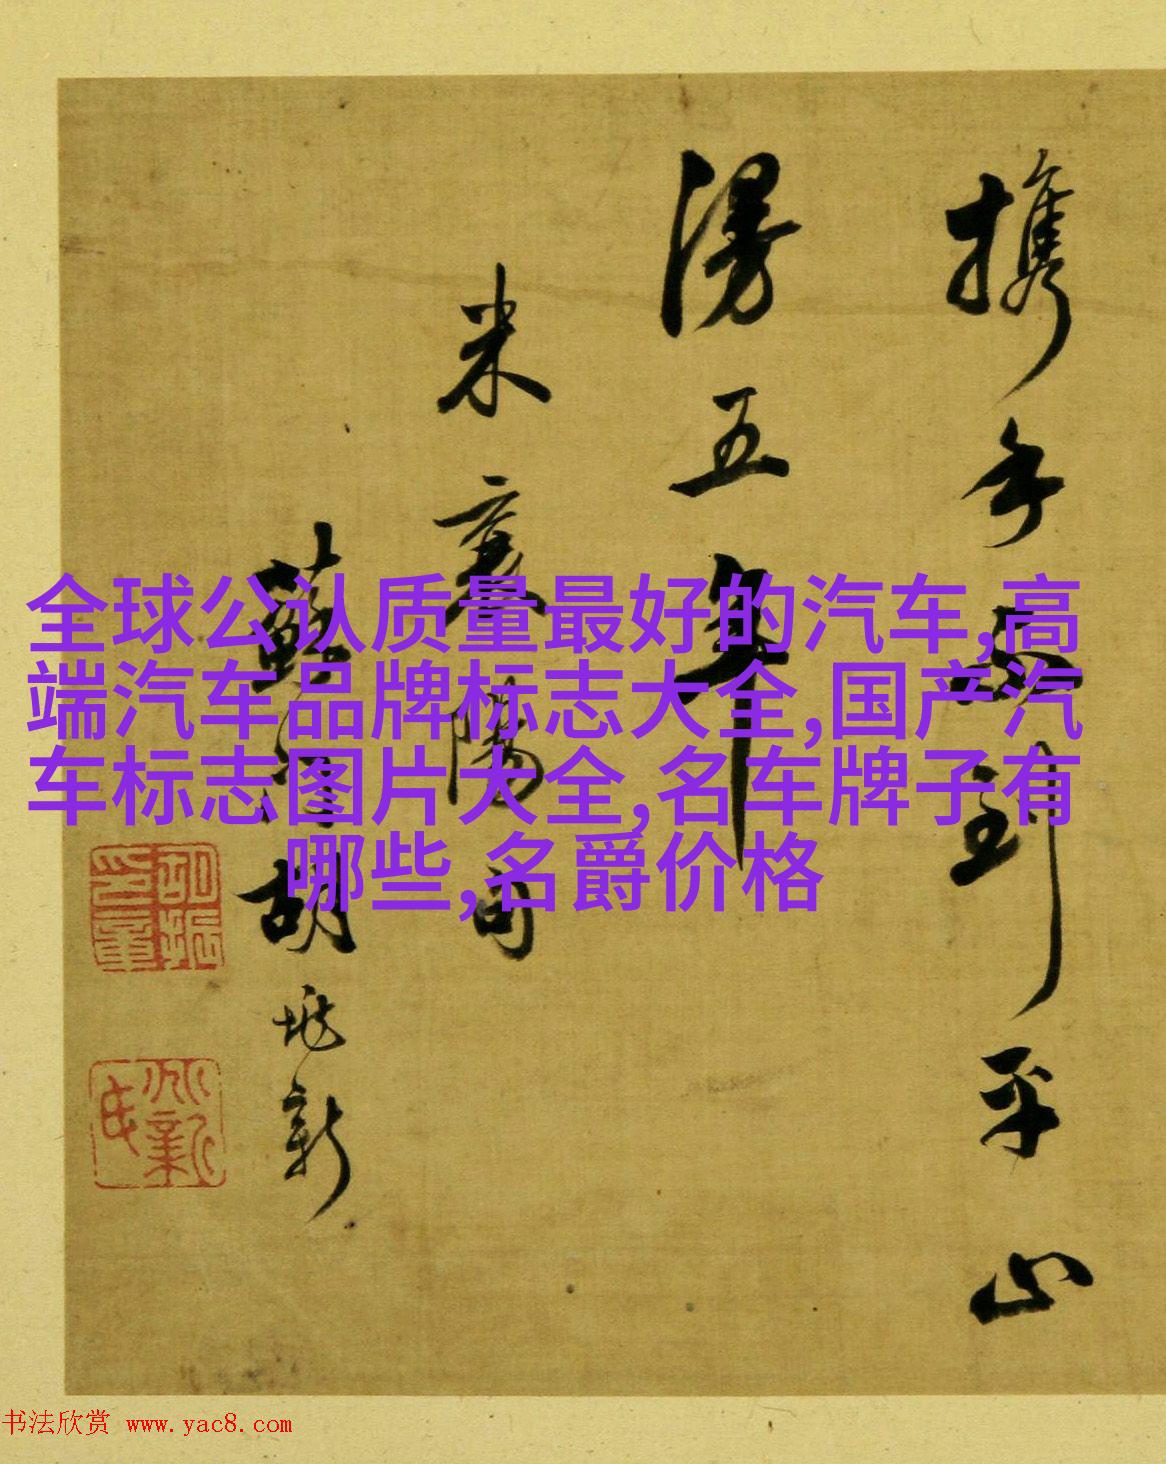 全球公认质量最好的汽车,高
端汽车品牌标志大全,国产汽
车标志图片大全,名车牌子有
哪些,名爵价格
携手同到平山
漫五年
米襄陽句
胡
新
书法欣赏 www.yac8.com